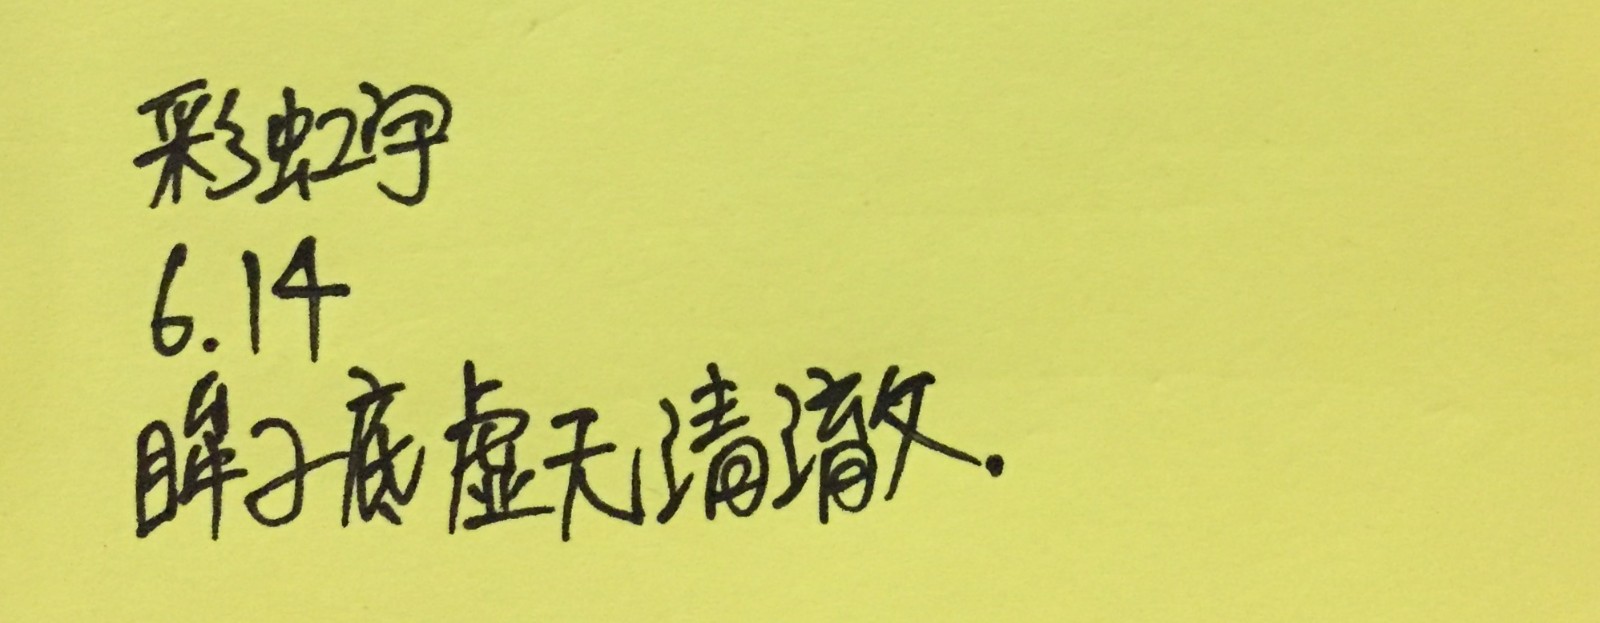 彩虹宇
6.14
眸子底虚无清澈.